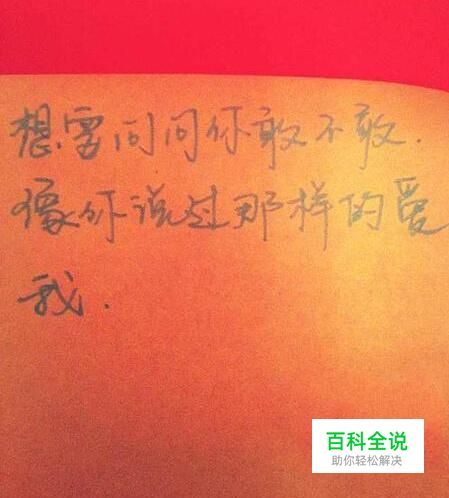 想要问问你敢不敢.
像你说过那样的爱
我.
百科全说
助你轻松解决